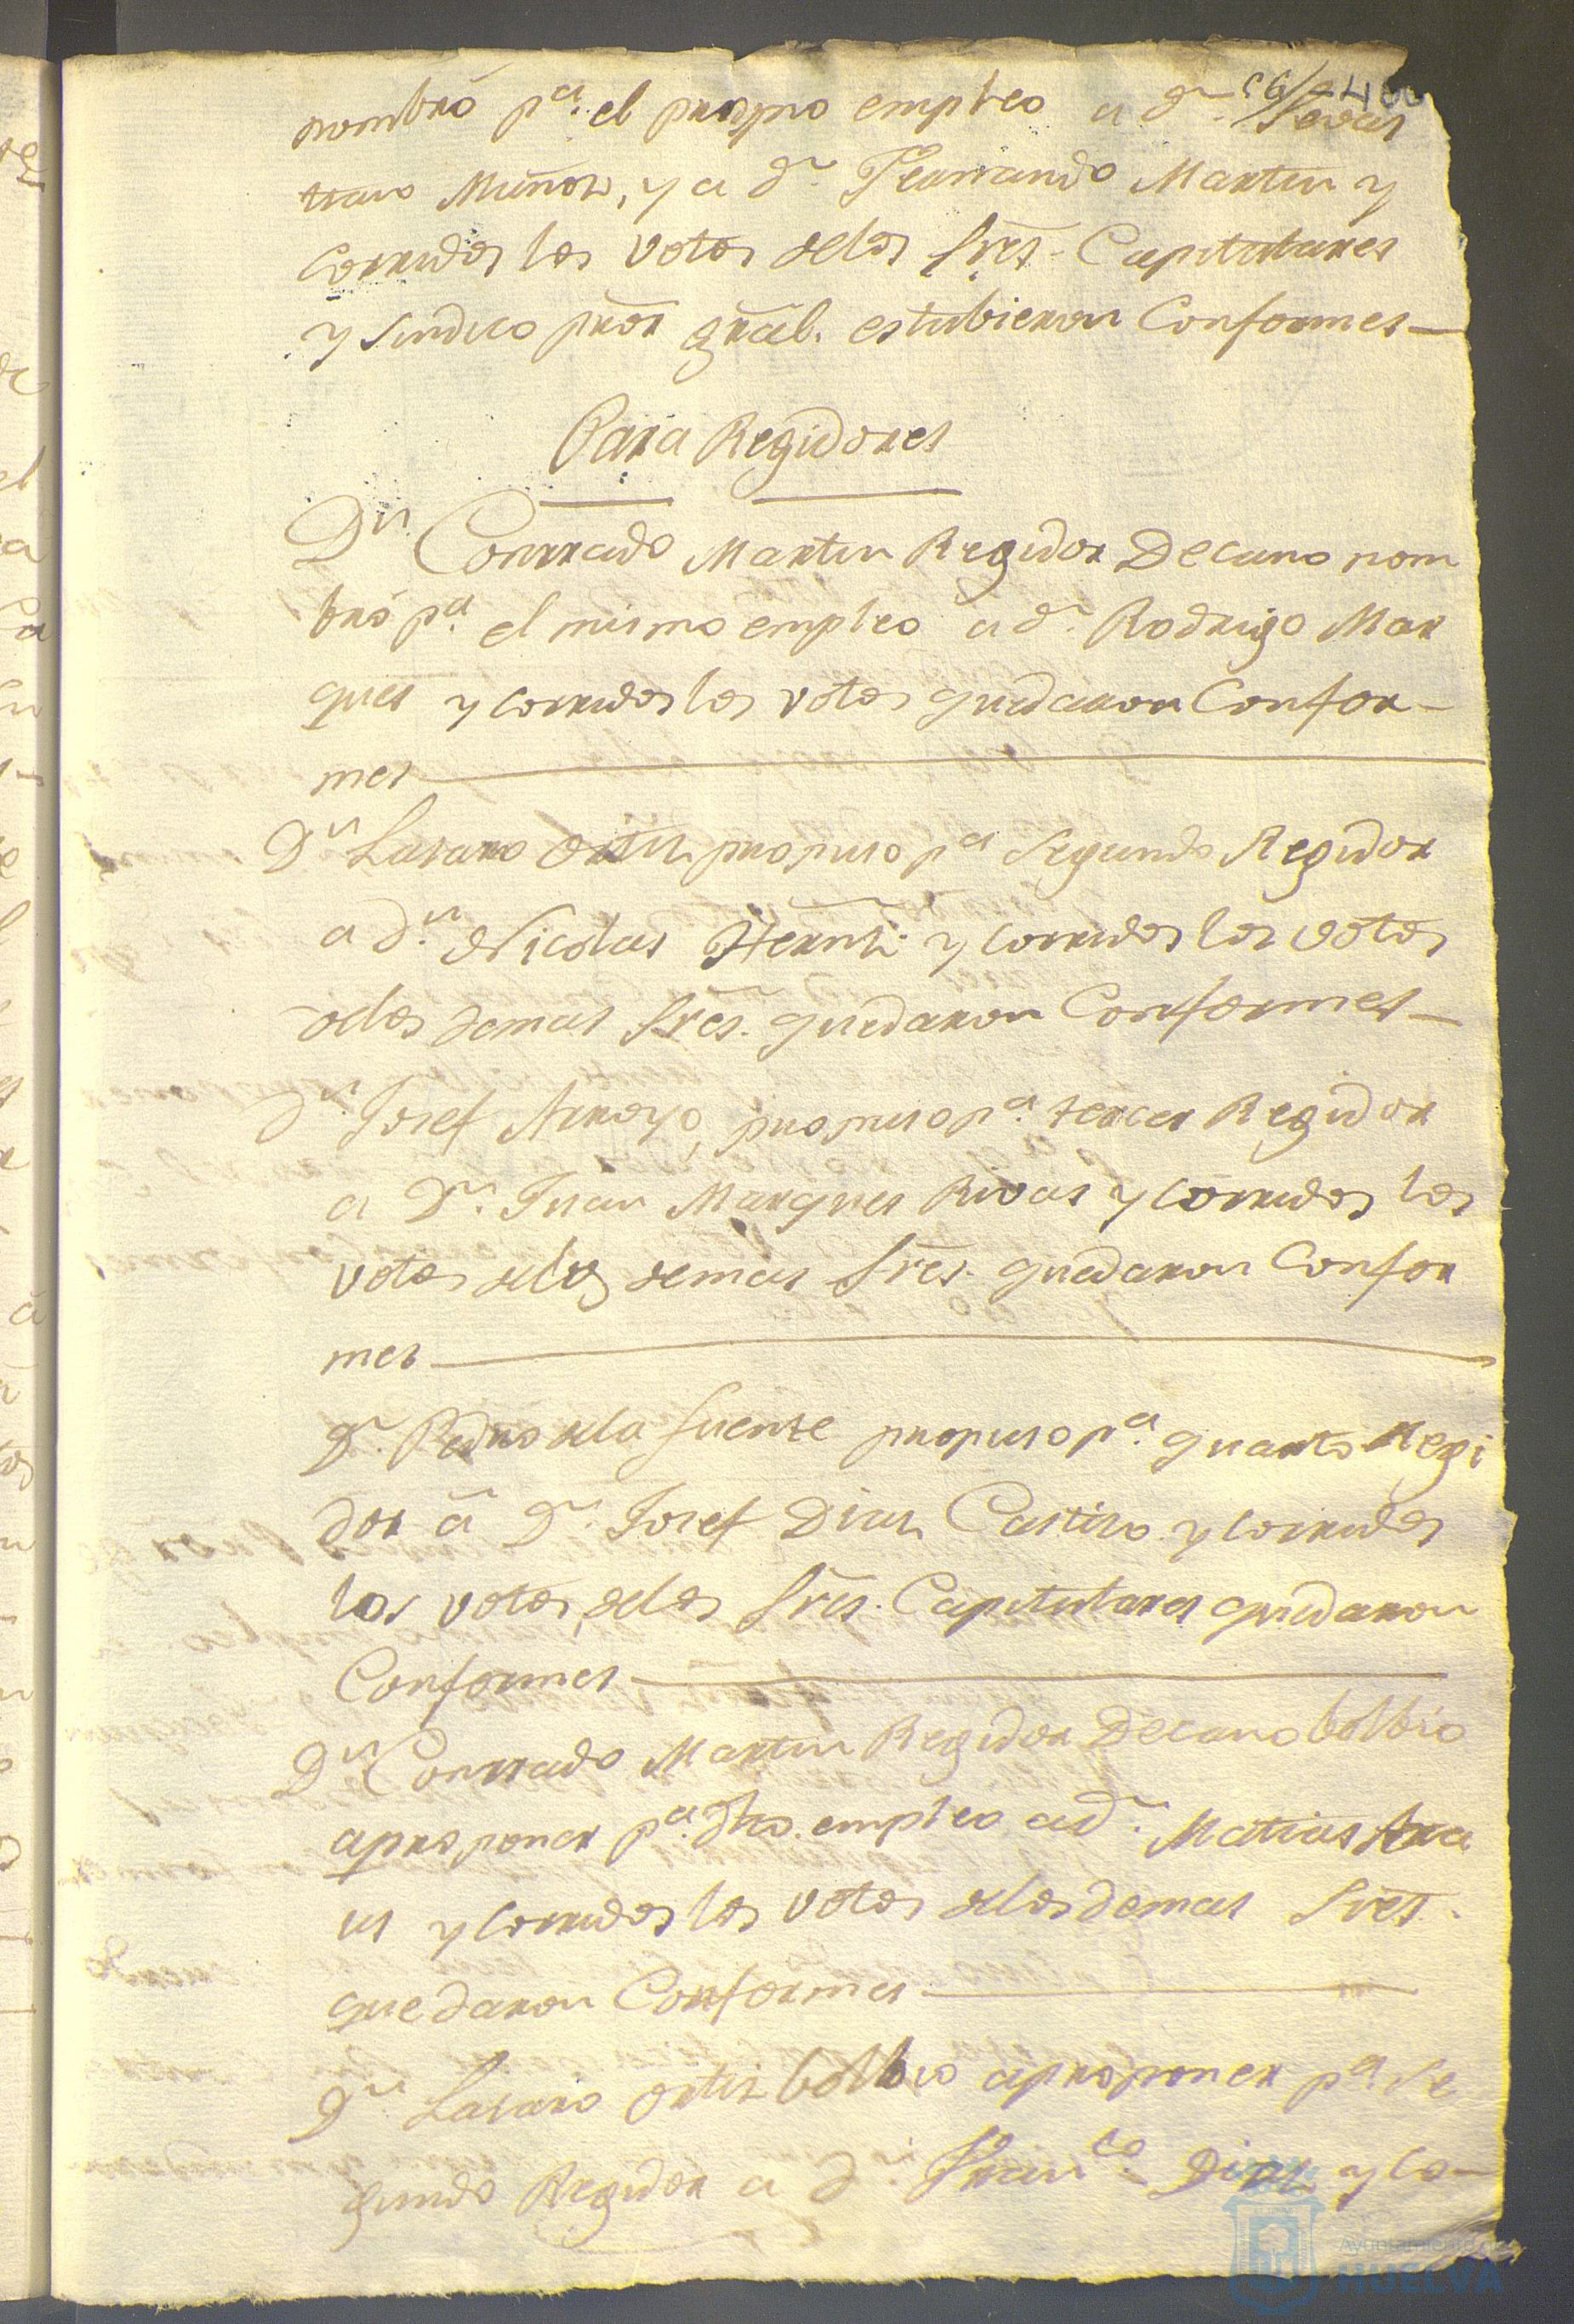 nombró p.ª el propio empleo a d.n Sevas
tian Muñoz, y a d.n Fernando Martin y
corridos los votos delos Sres. Capitulares
y Sindico pror gral. estubieron Conformes
Para Regidores
Dn. Conrrado Martin Regidor Decano nom
bró p.ª el mismo empleo a d.n Rodrigo Mar
ques y corridos los votos quedaron Confor-
mes
Dn Lasaro Ortiz propuso p.ª Segundo Regidor
a d.n Nicolas Hernz. y corridos los votos
delos demas Sres. quedaron Conformes
dn. Josef Arroyo, propuso p.ª tercer Regidor
a Dn. Juan Marques Rivas y corridos los
votos delos demas Sres. quedaron Confor
mes
Dn. Pedro dela fuente propuso p.ª quarto Regi
dor á Dn. Josef Dias Castiso y corridos
los votos, delos Sres. Capitulares quedaron
Conformes
Dn Conrrado Martin Regidor Decano bolbio
aproponer p.ª dho. empleo ad.n Matias Ara
us y corridos los votos delos demas Sres.
quedaron Conformes
Dn. Lasaro Ortiz bolbio aproponer p.ª Se
gundo Regidor a dn. Fran.co Dias y co-
Ayuntamiento
HUELVA